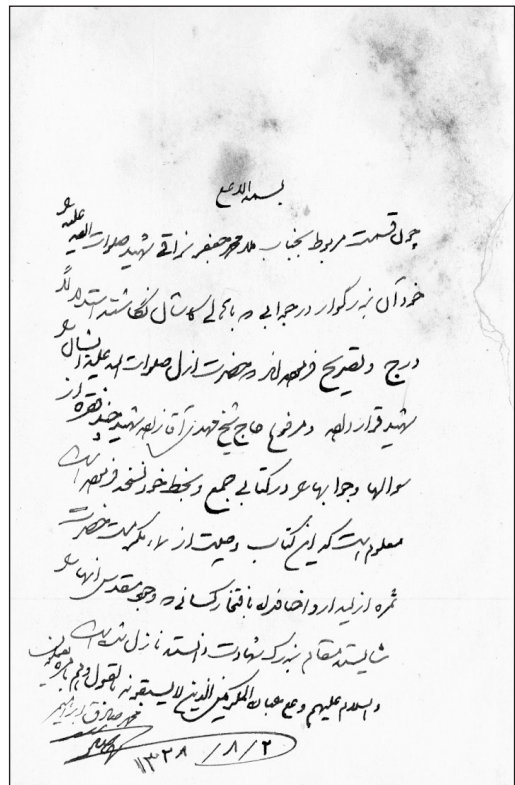 بسمه الاعلی
چون قسمت مربوط بجناب ملا محمد جعفر نراقی شهید صلوات الله علیه
خود آن بزرگوار در جوابی که نگاشته استدلالاً
درج و تصریح فرموده اند که حضرت ازل صلوات الله علیه ایشان
شهید قرار داده و مرفوع حاج شیخ مهدی آقا زاده شهید چند فقره از
سوالها و جوابها را در کتابی جمع و بخط خود نسخه فرموده است
معلوم است که این کتاب وصیت از
ثمره ازلیه را و اضافه با افتخار کسانی که وجود مقدس آنها را
شایسته مقام بزرگ شهادت دانسته نازل شده است
والسلام علیهم و علی عباد المکرمین الذین لا یسبقونه بالقول و هم بامره یعملون
محمد صادق ابراهیمی
۱۳۲۸/۸/۲